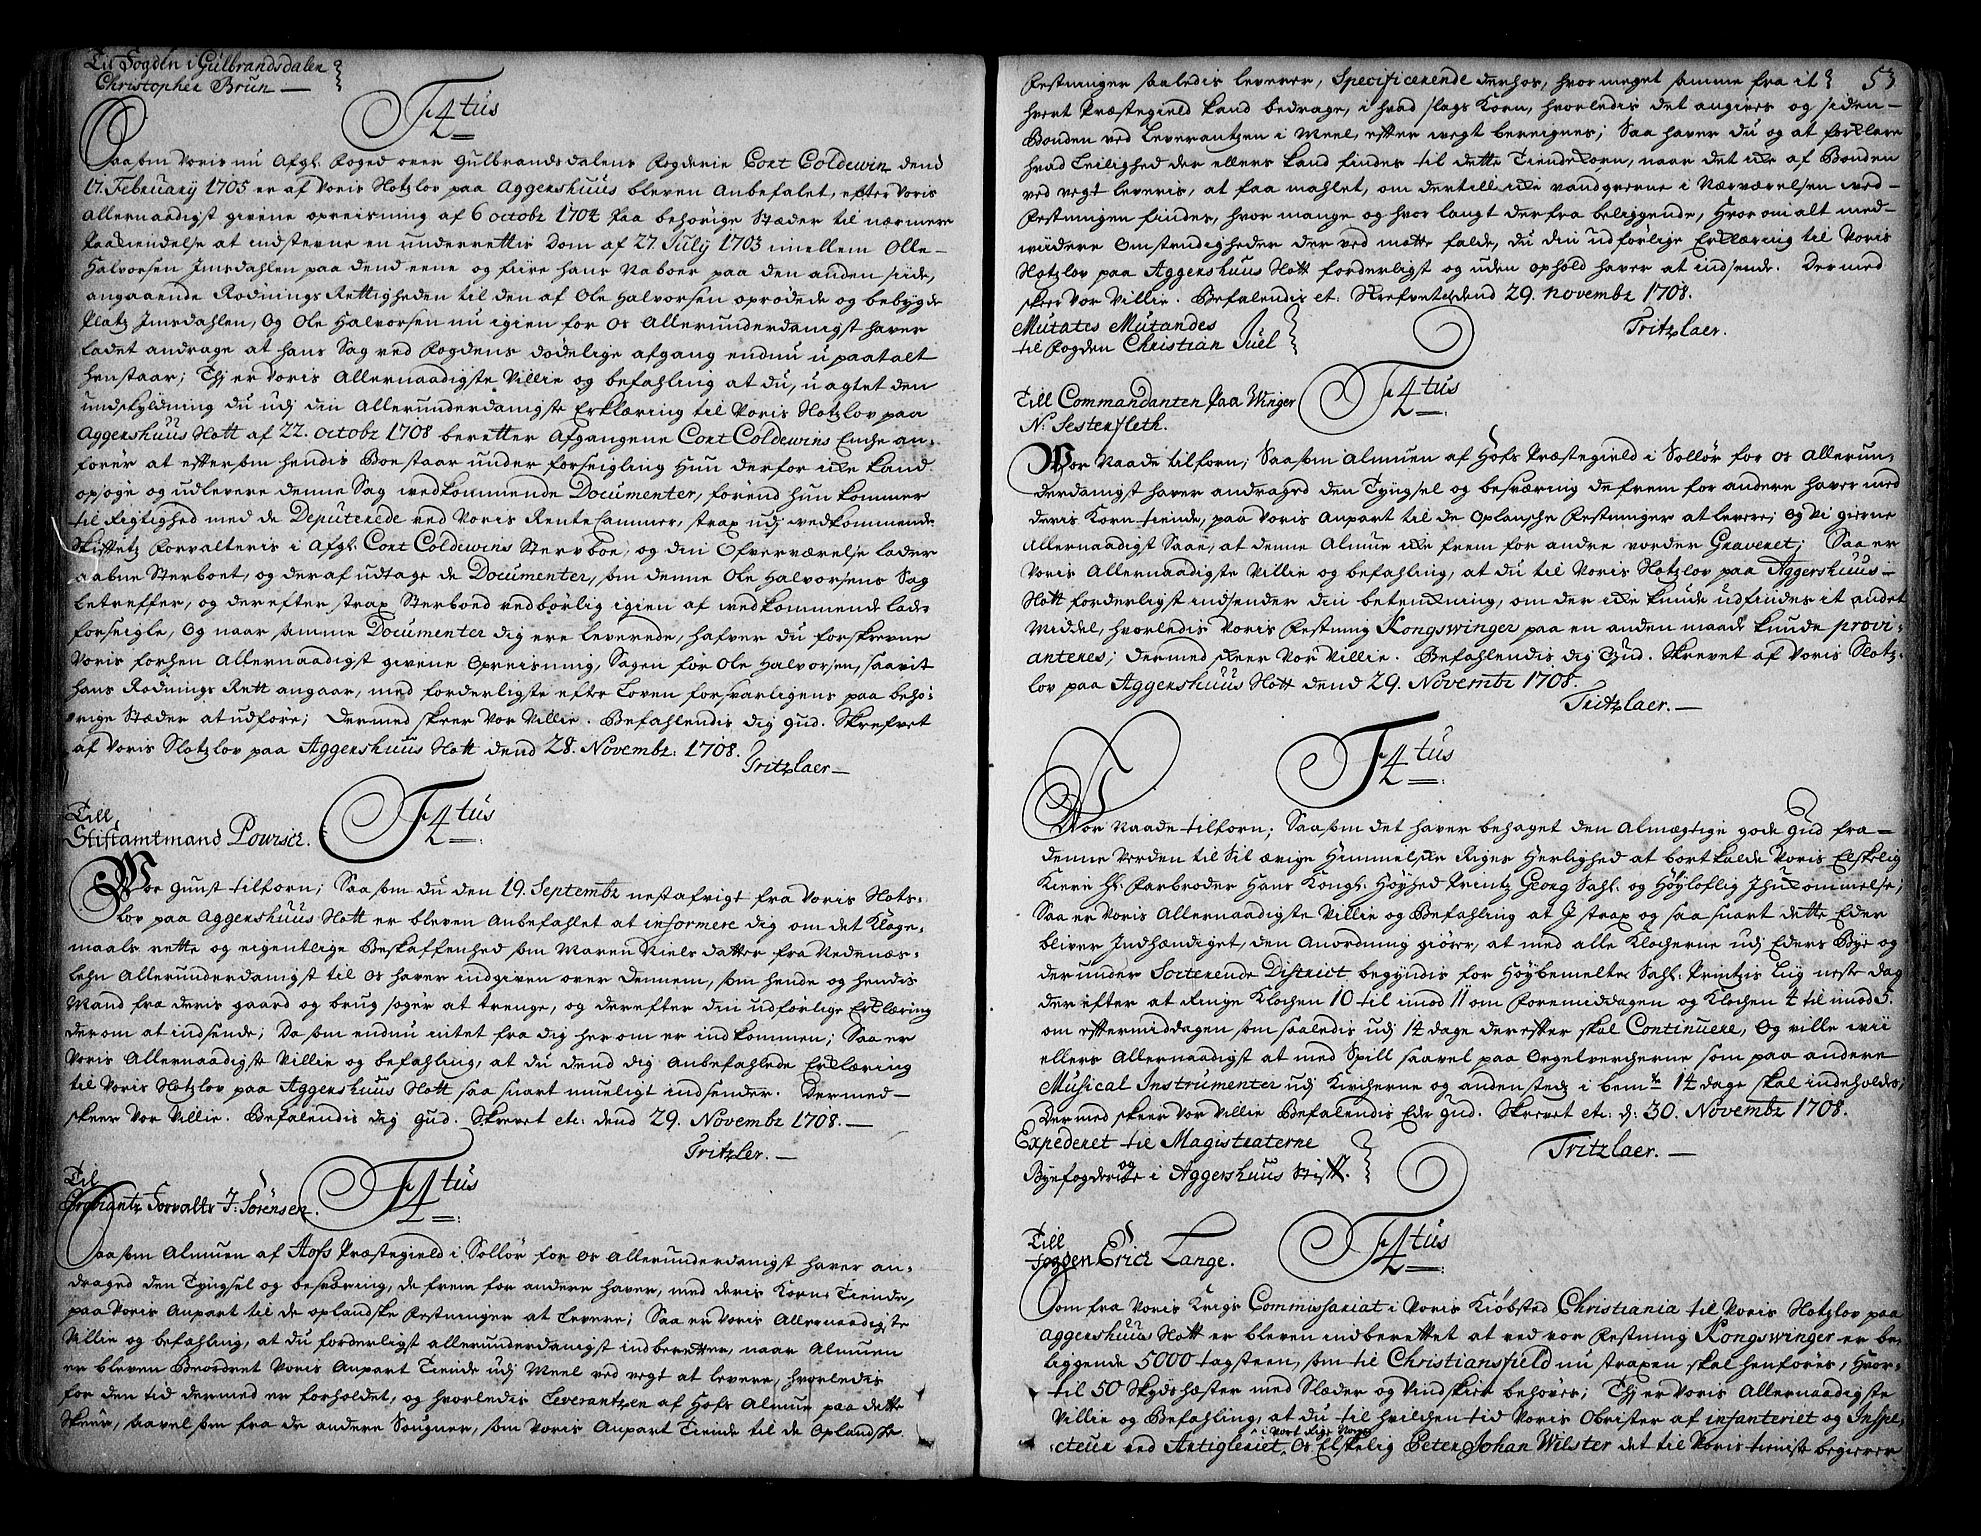 Til Fogden i Gulbrandsdalen
Christopher Brun —
F4tus
Saasom Voris nu Afg: Foged over Gulbrandsdalens Fogderie Cort Coldewin dend
17. February 1705 er af Voris Slotzlov paa Aggershuus bleven Anbefalet, efter Voris
allernaadigst givene opreisning af 6 octobr 1704 paa behörige Stæder til nærmere
Paakiendelse at indstevne en underrettis Dom af 27. July 1703 imellem Olle
Halvorsen Imsdahlen paa dend eene og fiire hans Naboer paa den anden side,
angaaende Rödnings Rettigheden til den af Ole Halvorsen oprödede og bebygde
Platz Imsdahlen, Og Ole Halvorsen nu igien for os Allerunderdanigst haver
ladet andrage at hans Sag ved Fogdens dödelige afgang endnu u paatalt
henstaar; Thj er Voris Allernaadigste Villie og befahling at du, uagtet den
undskyldning du udj din Allerunderdanigste Erklæring til Voris Slotzlov paa
Aggershuus Slott af 22. octobr 1708 beretter Afgangene Cort Coldewins Enche an-
förer at eftersom hendis Boe staar under forseigling Hun derfor icke kand
opsöge og udlevere denne Sag vedkommende Documenter, förend hun kommer
til Rigtighed med de Deputerede ved Voris Rente Cammer, strax udj vedkommende
Skiftetz Forvalteris i Afg: Cort Coldewins Stervboe, og din Ofverværelse lader
aabne Sterboet, og deraf udtage de Documenter, som denne Ole Halvorsens Sag
betreffer, og derefter strax Sterboed vedbörlig igien af vedkommende lade
forseigle, Og naar samme Documenter dig ere leverede, hafver du forskrevne
Voris forhen Allernaadigst givene Opreisning, Sagen for Ole Halvorsen, saavit
hans Rödnings Rett angaar, med forderligste efter Loven forsvarligens paa behö-
rige Stæder at udföre; Dermed skeer Vor Villie. Befahlendis dig Gud. Skrefvet
af Voris Slotzlov paa Aggershuus Slott dend 28. Novembr: 1708.
Tritzlaer —
Till
Stiftamtmand Pourser.
F4tus
Vor Gunst tilforn; Saasom du den 19. Septembr nestafvigt fra Voris Slots-
lov paa Aggershuus Slott er bleven Anbefahlet at informere dig om det Klage-
maals rette og eigentlige Beskaffenhed som Maren Niels datter fra Nedenæs-
Lehn Allerunderdanigst til os haver indgiven over dennem, som hende og hendis
Mand fra deris gaard og brug söger at trenge, og derefter din udförlige Erklæring
derom at indsende; Da som endnu intet fra dig herom er indkommen; Saa er
Voris Allernaadigste Villie og befahling, at du dend dig Anbefahlede Erklæring
til Voris Slotzlov paa Aggershuus Slott saa snart mueligt indsender. Dermed —
skeer Vor Villie. Befalendis dig Gud. Skrevet etc: dend 29. Novembr 1708. —
Tritzler. —
Til
Proviantz Forvaltr J: Sörensen.
F4tus
Saasom Almuen af Hofs Præstegield i Sollör for os Allerunderdanigst haver an-
draged den Tyngsel og besværing, de frem for andere haver, med deris Korne Tiende,
paa Voris Anpart til de oplandske Festninger at levere; Saa er Voris Allernaadigste
Villie og befahling, at du forderligst allerunderdanigst indberetter, naar Almuen
er bleven Beordret Voris Anpart Tiende udj Meel ved vegt at levere, hvorledis
for den tid dermed er forholdet, og hvorledis Leverantzen af Hofs Almue paa dette
Skeer, saavel som fra de andere Sougner, som Voris Anpart Tiende til de Oplandske
53
Festninger saaledis leverer, Specificerende derhos, hvormeget samme fra it
hvert Præstegield kand bedrage, i hvad slags Korn, hvorledis det angives og siden —
Bonden ved Leverantzen i Meel, efter vegt bereignes; Saa haver du og at forklare
hvad Leilighed der ellers kand findes til dette Tiende Korn, naar det icke af Bonden
ved vegt leveris, at faa mahlet, om dertill icke vandqverne i Nærværelsen ved —
Festningen findes, hvor mange og hvor langt derfra beliggende, Hvorom alt med —
widere Omstendigheder derved motte falde, du din udförlige Erklæring til Voris
Slotzlov paa Aggershuus Slott forderligst og uden ophold haver at indsende. Dermed
skeer Vor Villie. Befalendis et: Skrefvet dend 29. Novembr 1708.
Tritzlaer.
Mutates Mutandes
til Fogden Christian Juel
F4tus
Till Commandanten paa Winger
N: Sestenfleth.
Vor Naade tilforn; Saasom Almuen af Hofs Præstegield i Sollör for os Allerun-
derdanigst haver andraged den Tyngsel og besværing de frem for andere haver med
deris Korn tiende, paa Voris Anpart til de Oplansche Festninger at levere; Og Vi gierne
Allernaadigst Saae, at denne Almue icke frem for andre vorder Graveret; Saa er
Voris Allernaadigste Villie og befahling, at du til Voris Slotzlov paa Aggershuus —
Slott forderligst indsender din betenckning, om der icke kunde udfindes it andet
Middel, hvorledis Voris Festning Kongswinger paa en anden maade kunde provi-
anteres; dermed skeer Vor Villie. Befahlendis dig Gud. Skrevet af Voris Slotz-
lov paa Aggershuus Slott dend 29. Novembr 1708.
Tritzlaer. —
F4tus
Vor Naade tilforn; Saasom det haver behaget den Almægtige gode Gud fra —
denne Verden til Sit ævige Himmelske Riges Herlighed at bortkalde Voris Elskelig
Kiere Hr. Farbroder Hans Kongl. Höyhed Printz Georg Sahl. og Höyloflig Ihukommelse;
Saa er Voris Allernaadigste Villie og Befahling at I strax og saa snart dette Eder
bliver Indhændiget, den Anordning giörer, at med alle Klocherne udj Eders Bye og
derunder Sorterende District begyndis for Höybemelte Sahl. Printzis Liig neste dag
derefter at Ringe Klochen 10 til imod 11 om Foremiddagen og Klochen 4 til imod 5.
om eftermiddagen som saaledis udj 14 dage derefter skal Continuere, Og ville wii
ellers Allernaadigst at med Spill saavel paa Orgelvercherne som paa andere
Musical Instrumenter udj Kircherne og andensteds i bemte 14 dage skal indeholdes;
Dermed skeer Vor Villie Befalendis Eder Gud. Skrevet etc: d: 30. Novembr 1708.
Tritzlaer. —
Expederet til Magistraterne
og
Byefogderne i Aggershuus Stift.
F4tus
Till
Fogden Erich Lange.
Som fra Voris Krigs Commissariat i Voris Kiöbsted Christiania til Voris Slotzlov paa
Aggershuus Slott er bleven indberettet at ved vor Festning Kongswinger er be-
liggende 5000 tagsteen, som til Christiansfield nu straxen skal henföres, Hvor-
til 50 Skydshæster med Slæder og Vindskier behöves; Thj er Voris Allernaadigste
Villie og Befahling, at du til hvilchen tid Voris Obrister af infanteriet og Inspe-
i Vort Rige Norge
cteur ved Artigleriet, Os Elskelig Peter Johan Wilster det til Voris tieniste begierer